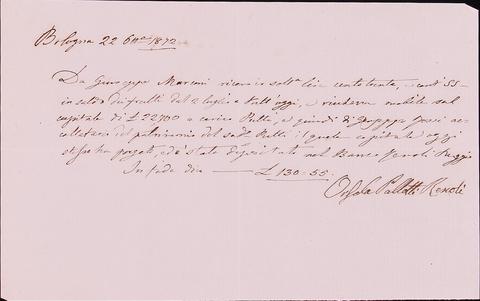 Bologna 22 6tt 1872
Da Giuseppe Marconi ricevo io sott.a Lire cento trenta, e cent 55
in saldo dei frutti dal 2 luglio a tutt'oggi, e ricchezza mobile sul
capitale di £ 22700 a carico Ratta, e quindi di Giuseppe
del patrimonio del sud. Ratta il quale capitale oggi
stesso ha pagato, ed è stato depositato nel Banco Renoli Buggio
In fede dia — £ 130-55.
Orsola Pallotti Renoli